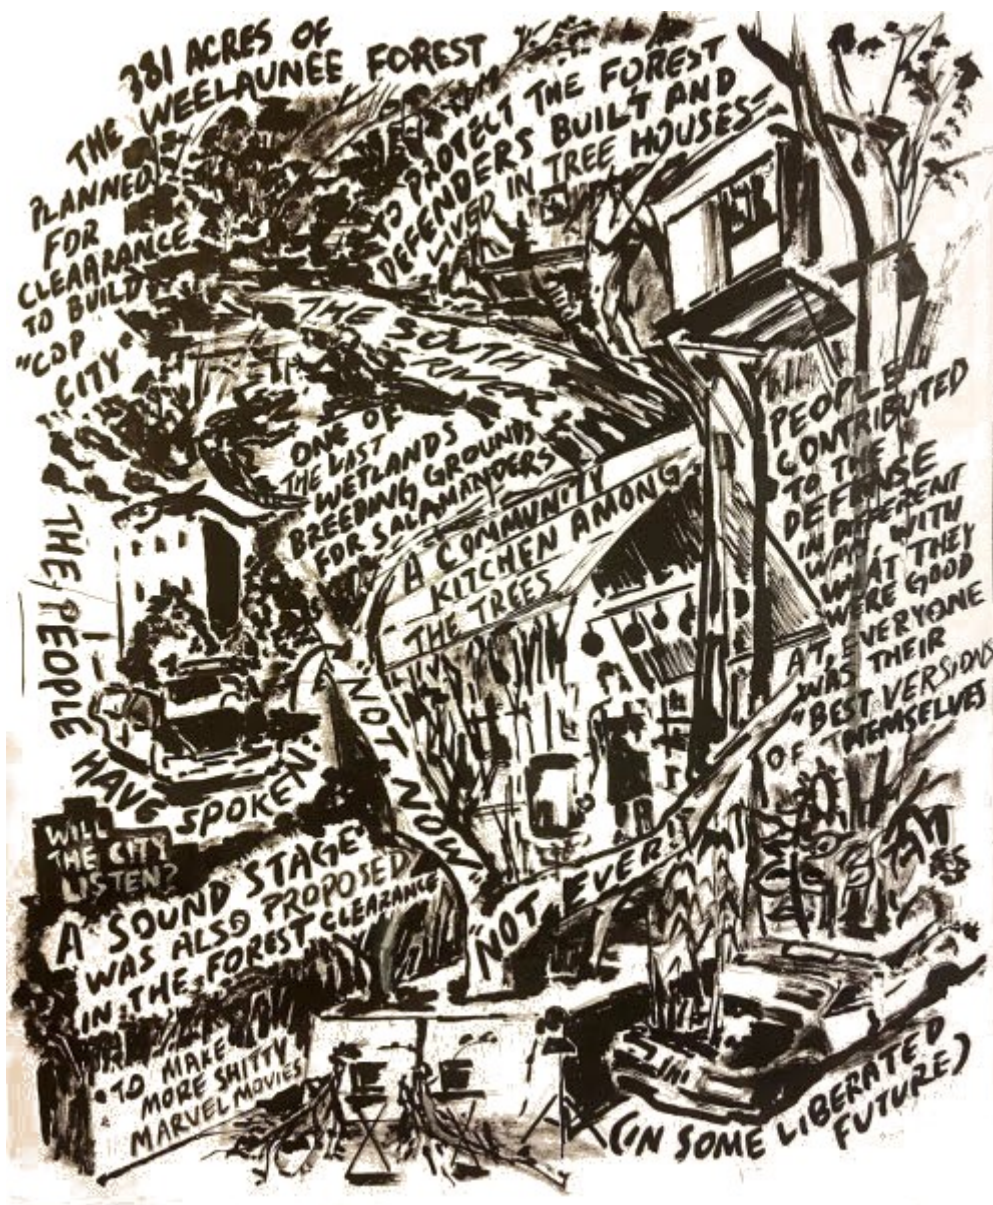 381 ACRES OF
THE WEELAUNEE FOREST
PLANNED
FOR
CLEARANCE
TO BUILD
"COP
CITY"
TO PROTECT THE FOREST
DEFENDERS BUILT AND
LIVED IN TREE HOUSES
THE SOUTH
RIVER
ONE OF
THE LAST
WETLANDS
BREEDING GROUNDS
FOR SALAMANDERS
A COMMUNITY
KITCHEN AMONG
THE TREES
PEOPLE
CONTRIBUTED
TO THE
DEFENSE
IN DIFFERENT
WAYS, WITH
WHAT THEY
WERE GOOD
AT, EVERYONE
WAS THEIR
"BEST VERSIONS
OF THEMSELVES
THE PEOPLE
HAVE
SPOKEN:
"NOT NOW"
"NOT EVER!"
WILL
THE CITY
LISTEN?
A SOUND STAGE
WAS ALSO PROPOSED
IN THE FOREST CLEARANCE
TO MAKE
MORE SHITTY
MARVEL MOVIES
(IN SOME LIBERATED
FUTURE)